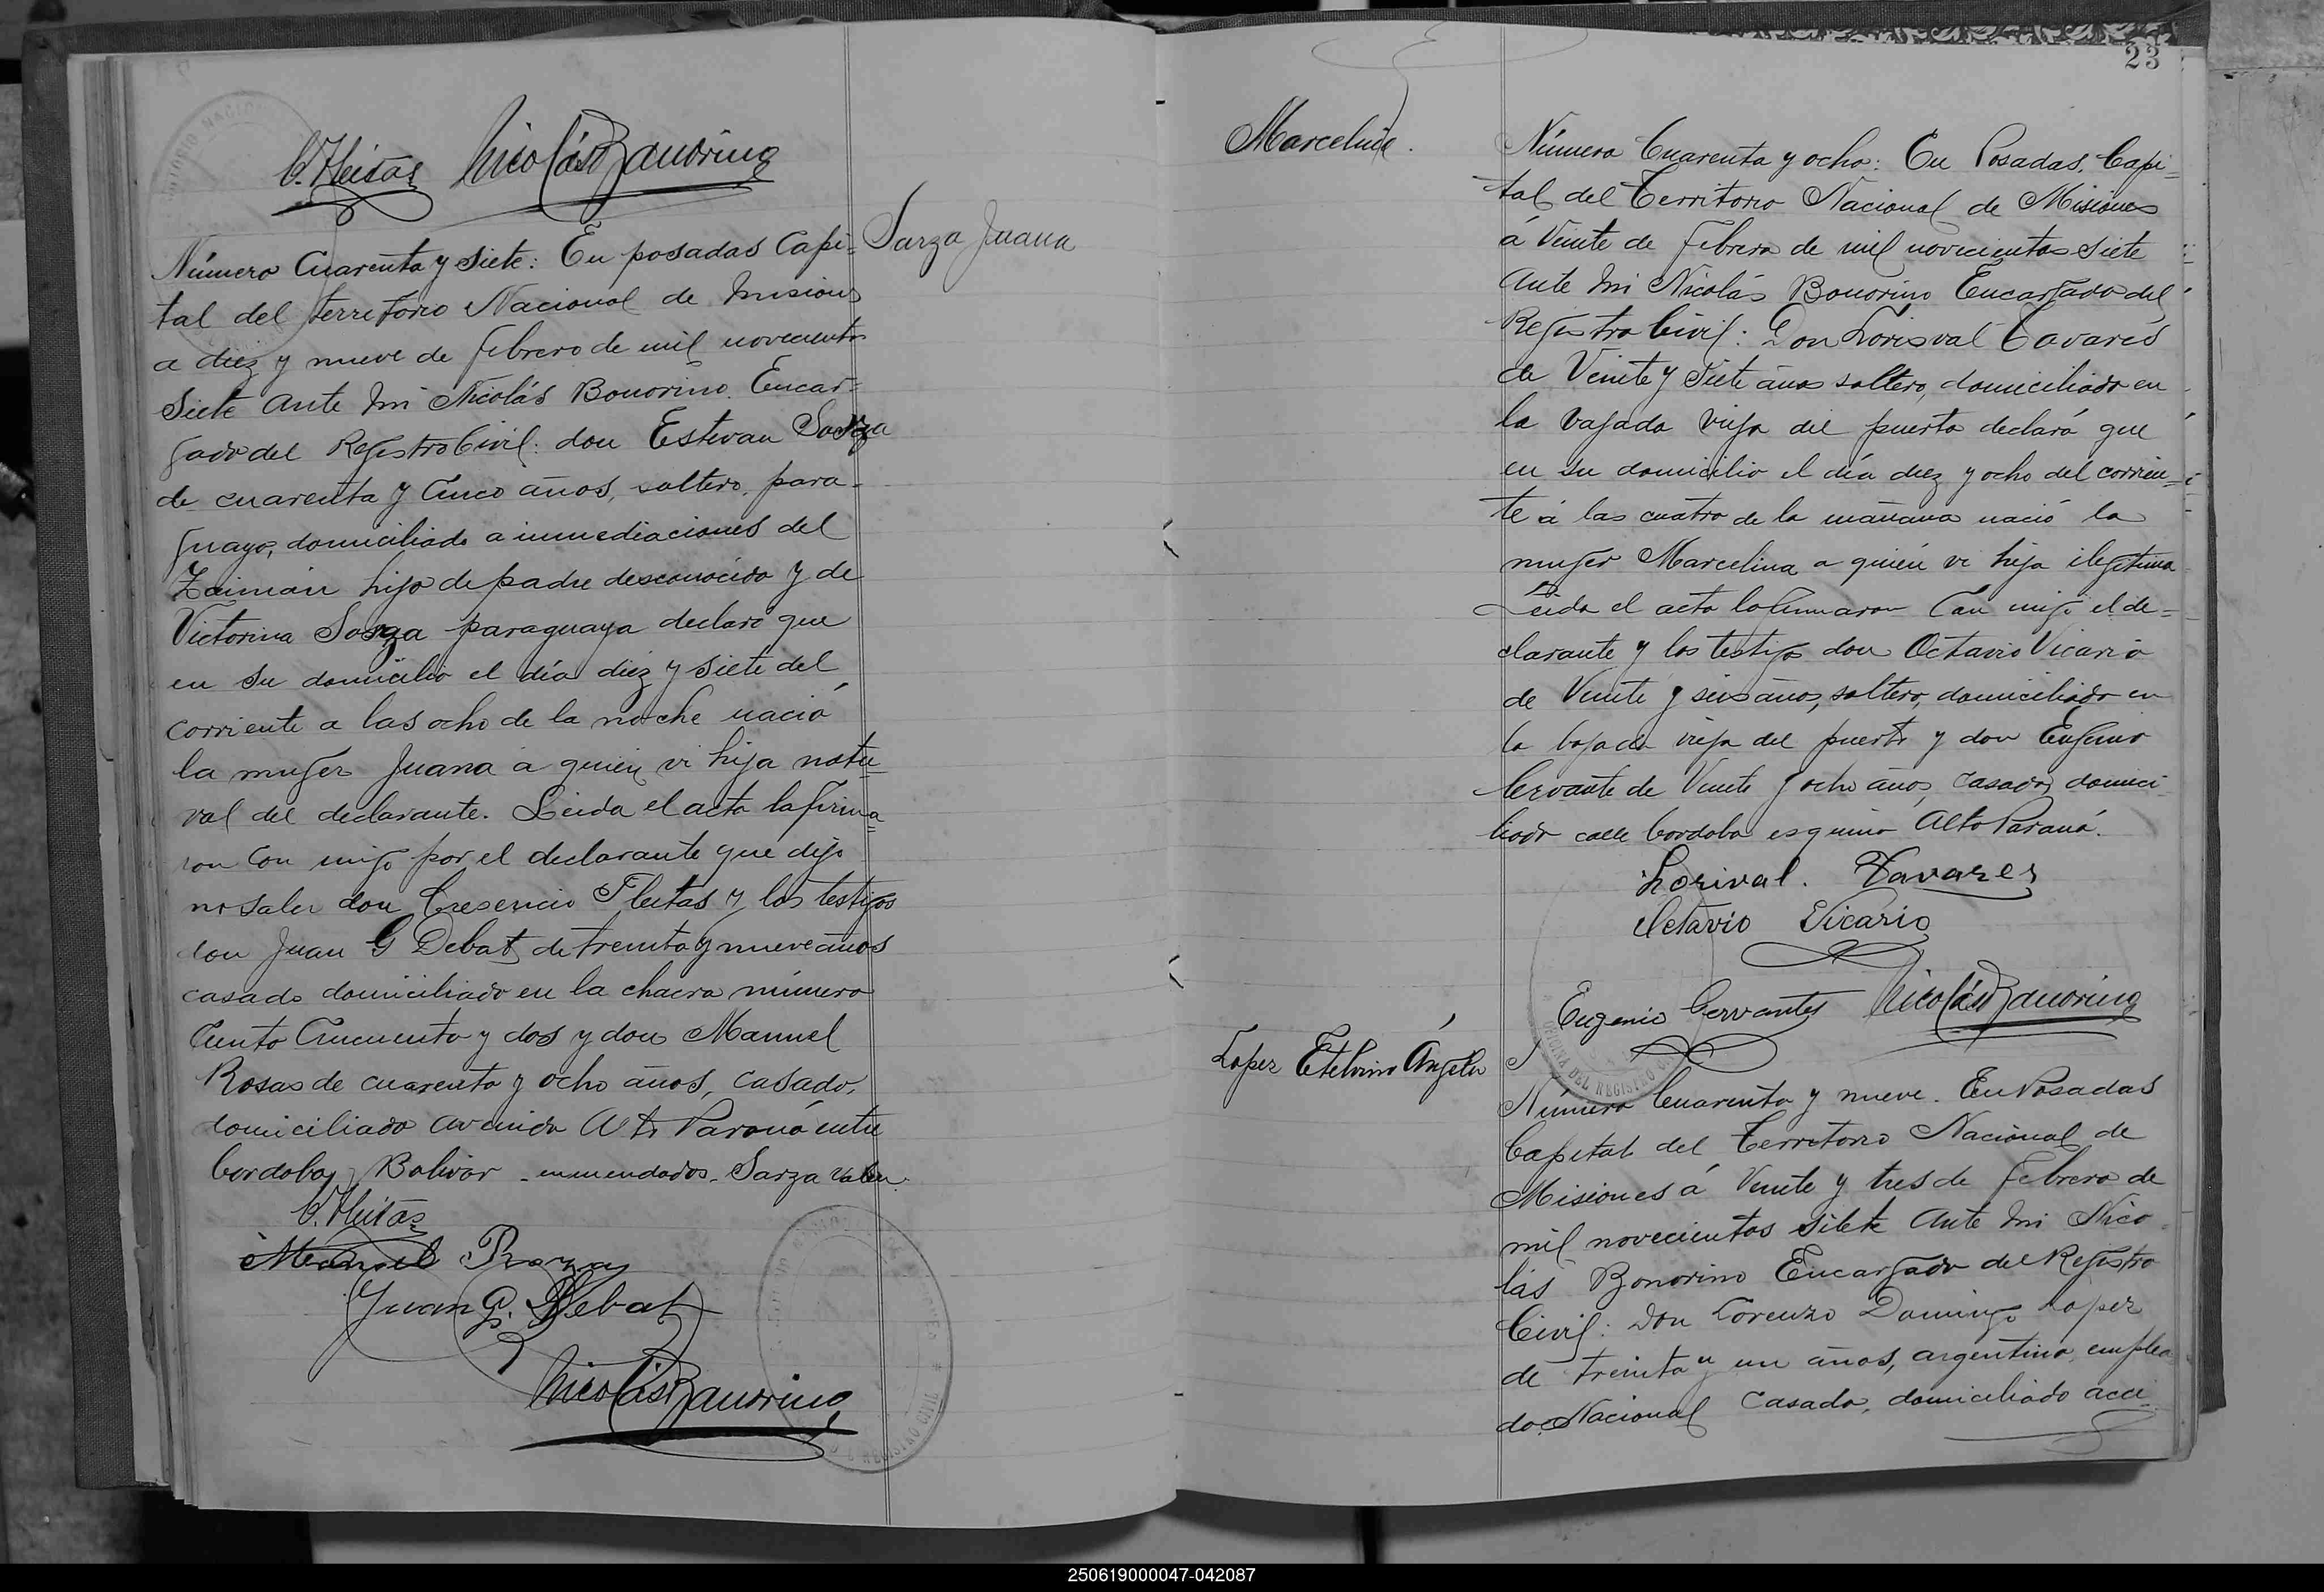 C. Fleitas Nicolás Bonorino
Sarza Juana
Número Cuarenta y siete: En posadas Capi=
tal del territorio Nacional de Misiones
a diez y nueve de febrero de mil novecientos
siete Ante mi Nicolás Bonorino. Encar=
gado del Registro Civil: don Estevan Sarza
de cuarenta y cinco años, soltero, para-
guayo, domiciliado a inmediaciones del
Zaimán hijo de padre desconocido y de
Victorina Sarza paraguaya declaró que
en su domicilio el día diez y siete del
corriente a las ocho de la noche nació
la muger Juana a quien vi hija natu=
ral del declarante. Leida el acta la firma=
ron con migo por el declarante que dijo
no saber don Cresencio Fleitas y los testigos
don Juan G Debat de treinta y nueve años
casado domiciliado en la chacra número
Ciento Cincuenta y dos y don Manuel
Rosas de cuarenta y ocho años, casado,
domiciliado avenida Alto Paraná entre
Cordoba y Bolivar - enmendados - Sarza valen.
C. Fleitas
Manuel Rozas
Juan G. Debat
Nicolás Bonorino
23
Marcelina.
Número Cuarenta y ocho: En Posadas, Capi=
tal del Territorio Nacional de Misiones
á Veinte de febrero de mil novecientos siete
Ante mi Nicolás Bonorino Encargado del
Registro Civil: Don Lorisval Tavares
de Veinte y siete años soltero, domiciliado en
la bajada vieja del puerto declaró que
en su domicilio el día diez y ocho del corrien=
te á las cuatro de la mañana nació la
muger Marcelina a quién vi hija ilegitima
Leida el acta la firmaron Con migo el de=
clarante y los testigos don Octavio Vicario
de Veinte y seis años, soltero, domiciliado en
la bajada vieja del puerto y don Eugenio
Cervante de Veinte y ocho años, casado, domici
liado calle Cordoba esquina Alto Paraná.
Lorival. Tavares
Octavio Vicario
Eugenio Cervantes Nicolás Bonorino
OFICINA DEL REGISTRO
Lopez Etelvino Ángel
Número Cuarenta y nueve. En Posadas
Capital del Territorio Nacional de
Misiones á Veinte y tres de febrero de
mil novecientos siete Ante mi Nico
lás Bonorino Encargado del Registro
Civil: Don Lorenzo Domingo Lopez
de treinta y un años, argentino, emplea
do Nacional Casado, domiciliado acci
250619000047-042087